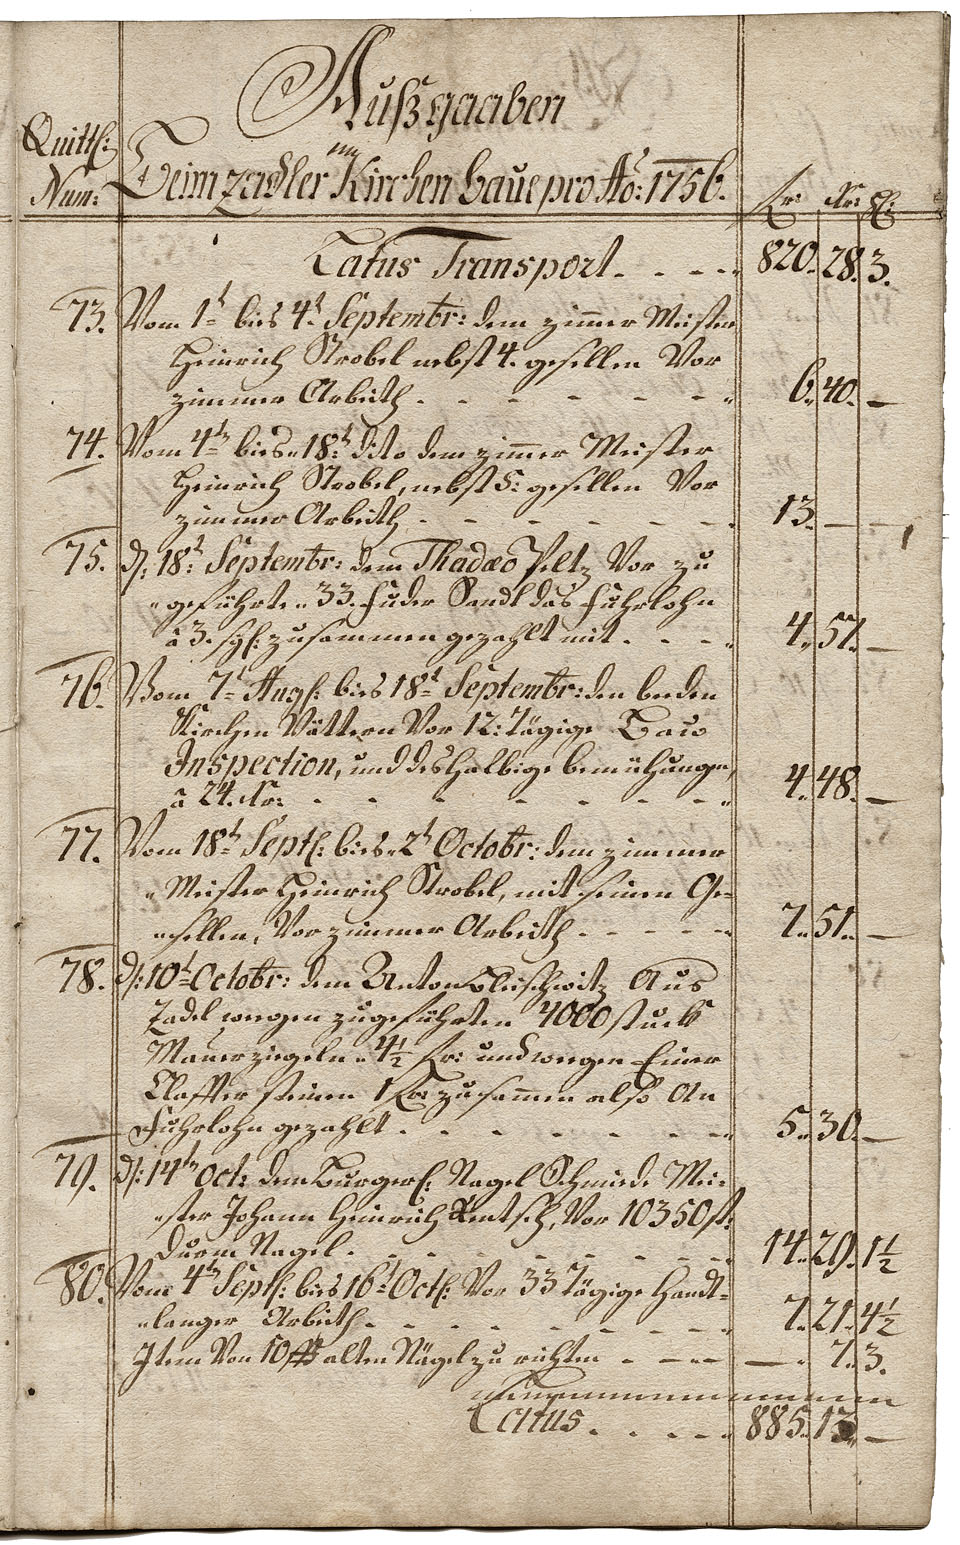 Außgaaben
Quitt:
Num:
Beim zadler Kirchen baue pro Aõ: 1756.
im
Kr: Hl:
Latus Transport. . . . . 820. 28. 3.
73. Vom 1t bies 4t Septembr: dem zimmer Meister
Heinrich Strobel nebst 4. gesellen Vor
zimmer Arbeith . . . . . . 6. 40. —
74. Vom 4t bies 18t dito dem zimmer Meister
Heinrich Strobel, nebst 5: gesellen Vor
zimmer Arbeith . . . . . . 13. — —
75. d: 18t Septembr: dem Thadæo Peltz Vor zu
geführte 33. fuder Sandt das fuhrlohn
â 3. sgl: zusammen gezahlt mit . . . . 4. 57. —
76. Vom 7t Augs: bies 18t Septembr: den beeden
Kirchen Vättern Vor 12: tägige Bau
Inspection, und deshalbige bemühungen,
â 24. Kr: . . . . . . . 4. 48. —
77. Vom 18t Septb: bies 2t Octobr: dem zimmer
Meister Heinrich Strobel, mit seinen Ge-
sellen, Vor zimmer Arbeith . . . . . 7. 51. —
78. d: 10t Octobr: dem Anton Aus
Zadel wegen zugeführten 4000 stuck
Mauerziegeln 4½ Fr: und wegen Einer
Claffter steinen 1 Fr: zusammen also An
Fuhrlohn gezahlt . . . . . . 5. 30. —
79. d: 14t Oct: dem Burgerl: Nagel Schmiede Mei-
ster Johann Heinrich Rentsch, Vor 10350 st:
Nagel . . . . . . 14. 29. 1½
80. Vom 4t Septb: bies 16t Octb: Vor 33 tägige Handt-
langer Arbeith . . . . . . 7. 21. 4½
Item Von 10 ℔ alten Nägel zu richten . — — 7. 3.
Latus . . . . . 885. 13. —